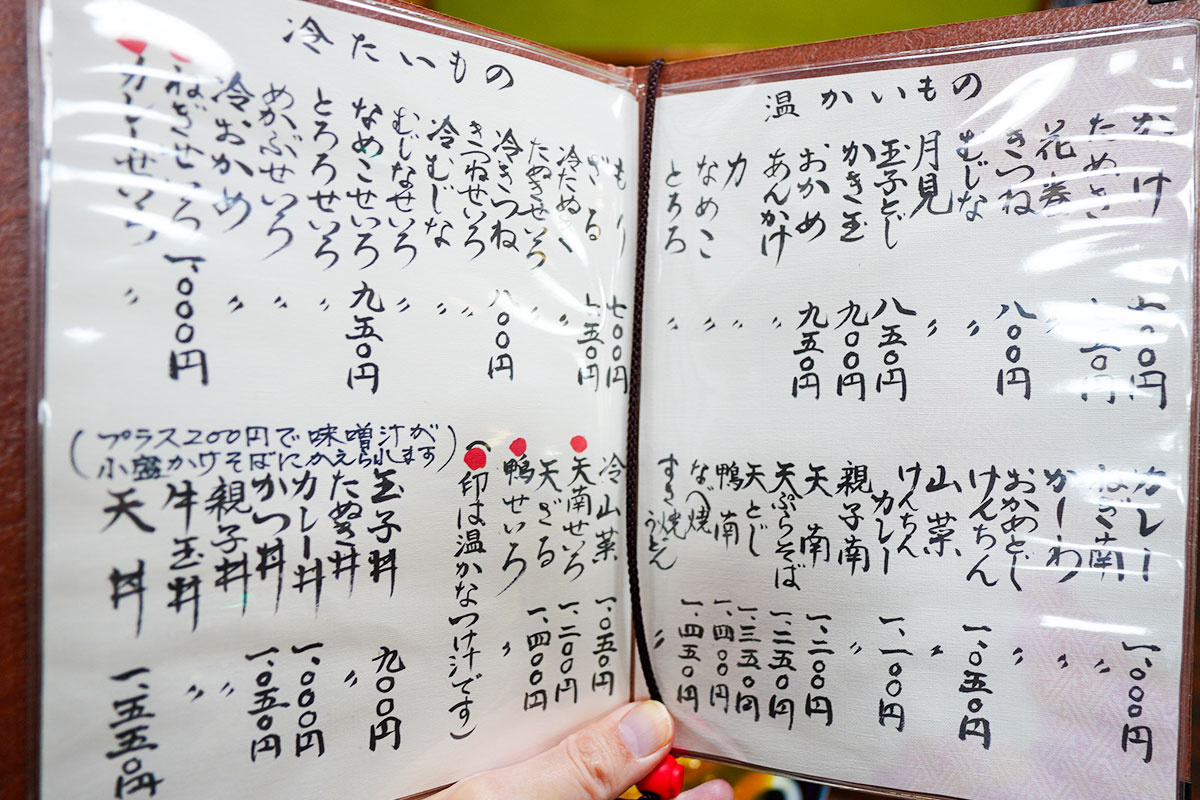 温かいもの
かけ 七〇〇円
たぬき 七五〇円
花巻 〃
きつね 八〇〇円
むじな 〃
月見 〃
玉子とじ 八五〇円
かき玉 九〇〇円
おかめ 九五〇円
あんかけ 〃
力 〃
なめこ 〃
とろろ 〃
カレー 一、〇〇〇円
ねぎ南 〃
かしわ 〃
おかめとじ 〃
けんちん 一、〇五〇円
山菜 〃
けんちんカレー 一、一〇〇円
親子南 〃
天南 一、二〇〇円
天ぷらそば 一、二五〇円
天とじ 一、三五〇円
鴨南 一、四〇〇円
なべ焼 一、四五〇円
すき焼うどん 〃
冷たいもの
もり 七〇〇円
ざる 七五〇円
冷たぬき 〃
たぬきせいろ 〃
冷きつね 八〇〇円
きつねせいろ 〃
冷むじな 〃
むじなせいろ 〃
なめこせいろ 九五〇円
とろろせいろ 〃
めかぶせいろ 〃
冷おかめ 〃
ねぎせいろ 一、〇〇〇円
カレーせいろ 〃
冷山菜 一、〇五〇円
天南せいろ 一、二〇〇円
天ざる 一、四〇〇円
鴨せいろ 〃
(●印は温かなつけ汁です)
(プラス200円で味噌汁が
小盛かけそばにかえられます)
玉子丼 九〇〇円
たぬき丼 〃
カレー丼 一、〇〇〇円
かつ丼 一、〇五〇円
親子丼 〃
牛玉丼 〃
天丼 一、五五〇円